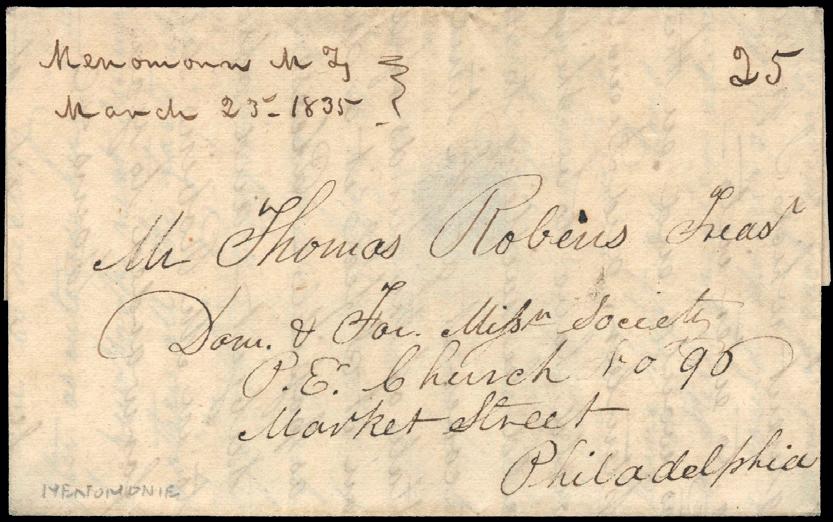 Menomonn M Ty
March 23 - 1835
25
Mr Thomas Robins Treasr
Dom. & For. Missn Society
P. E. Church No 90
Market Street
Philadelphia
MENOMONIE